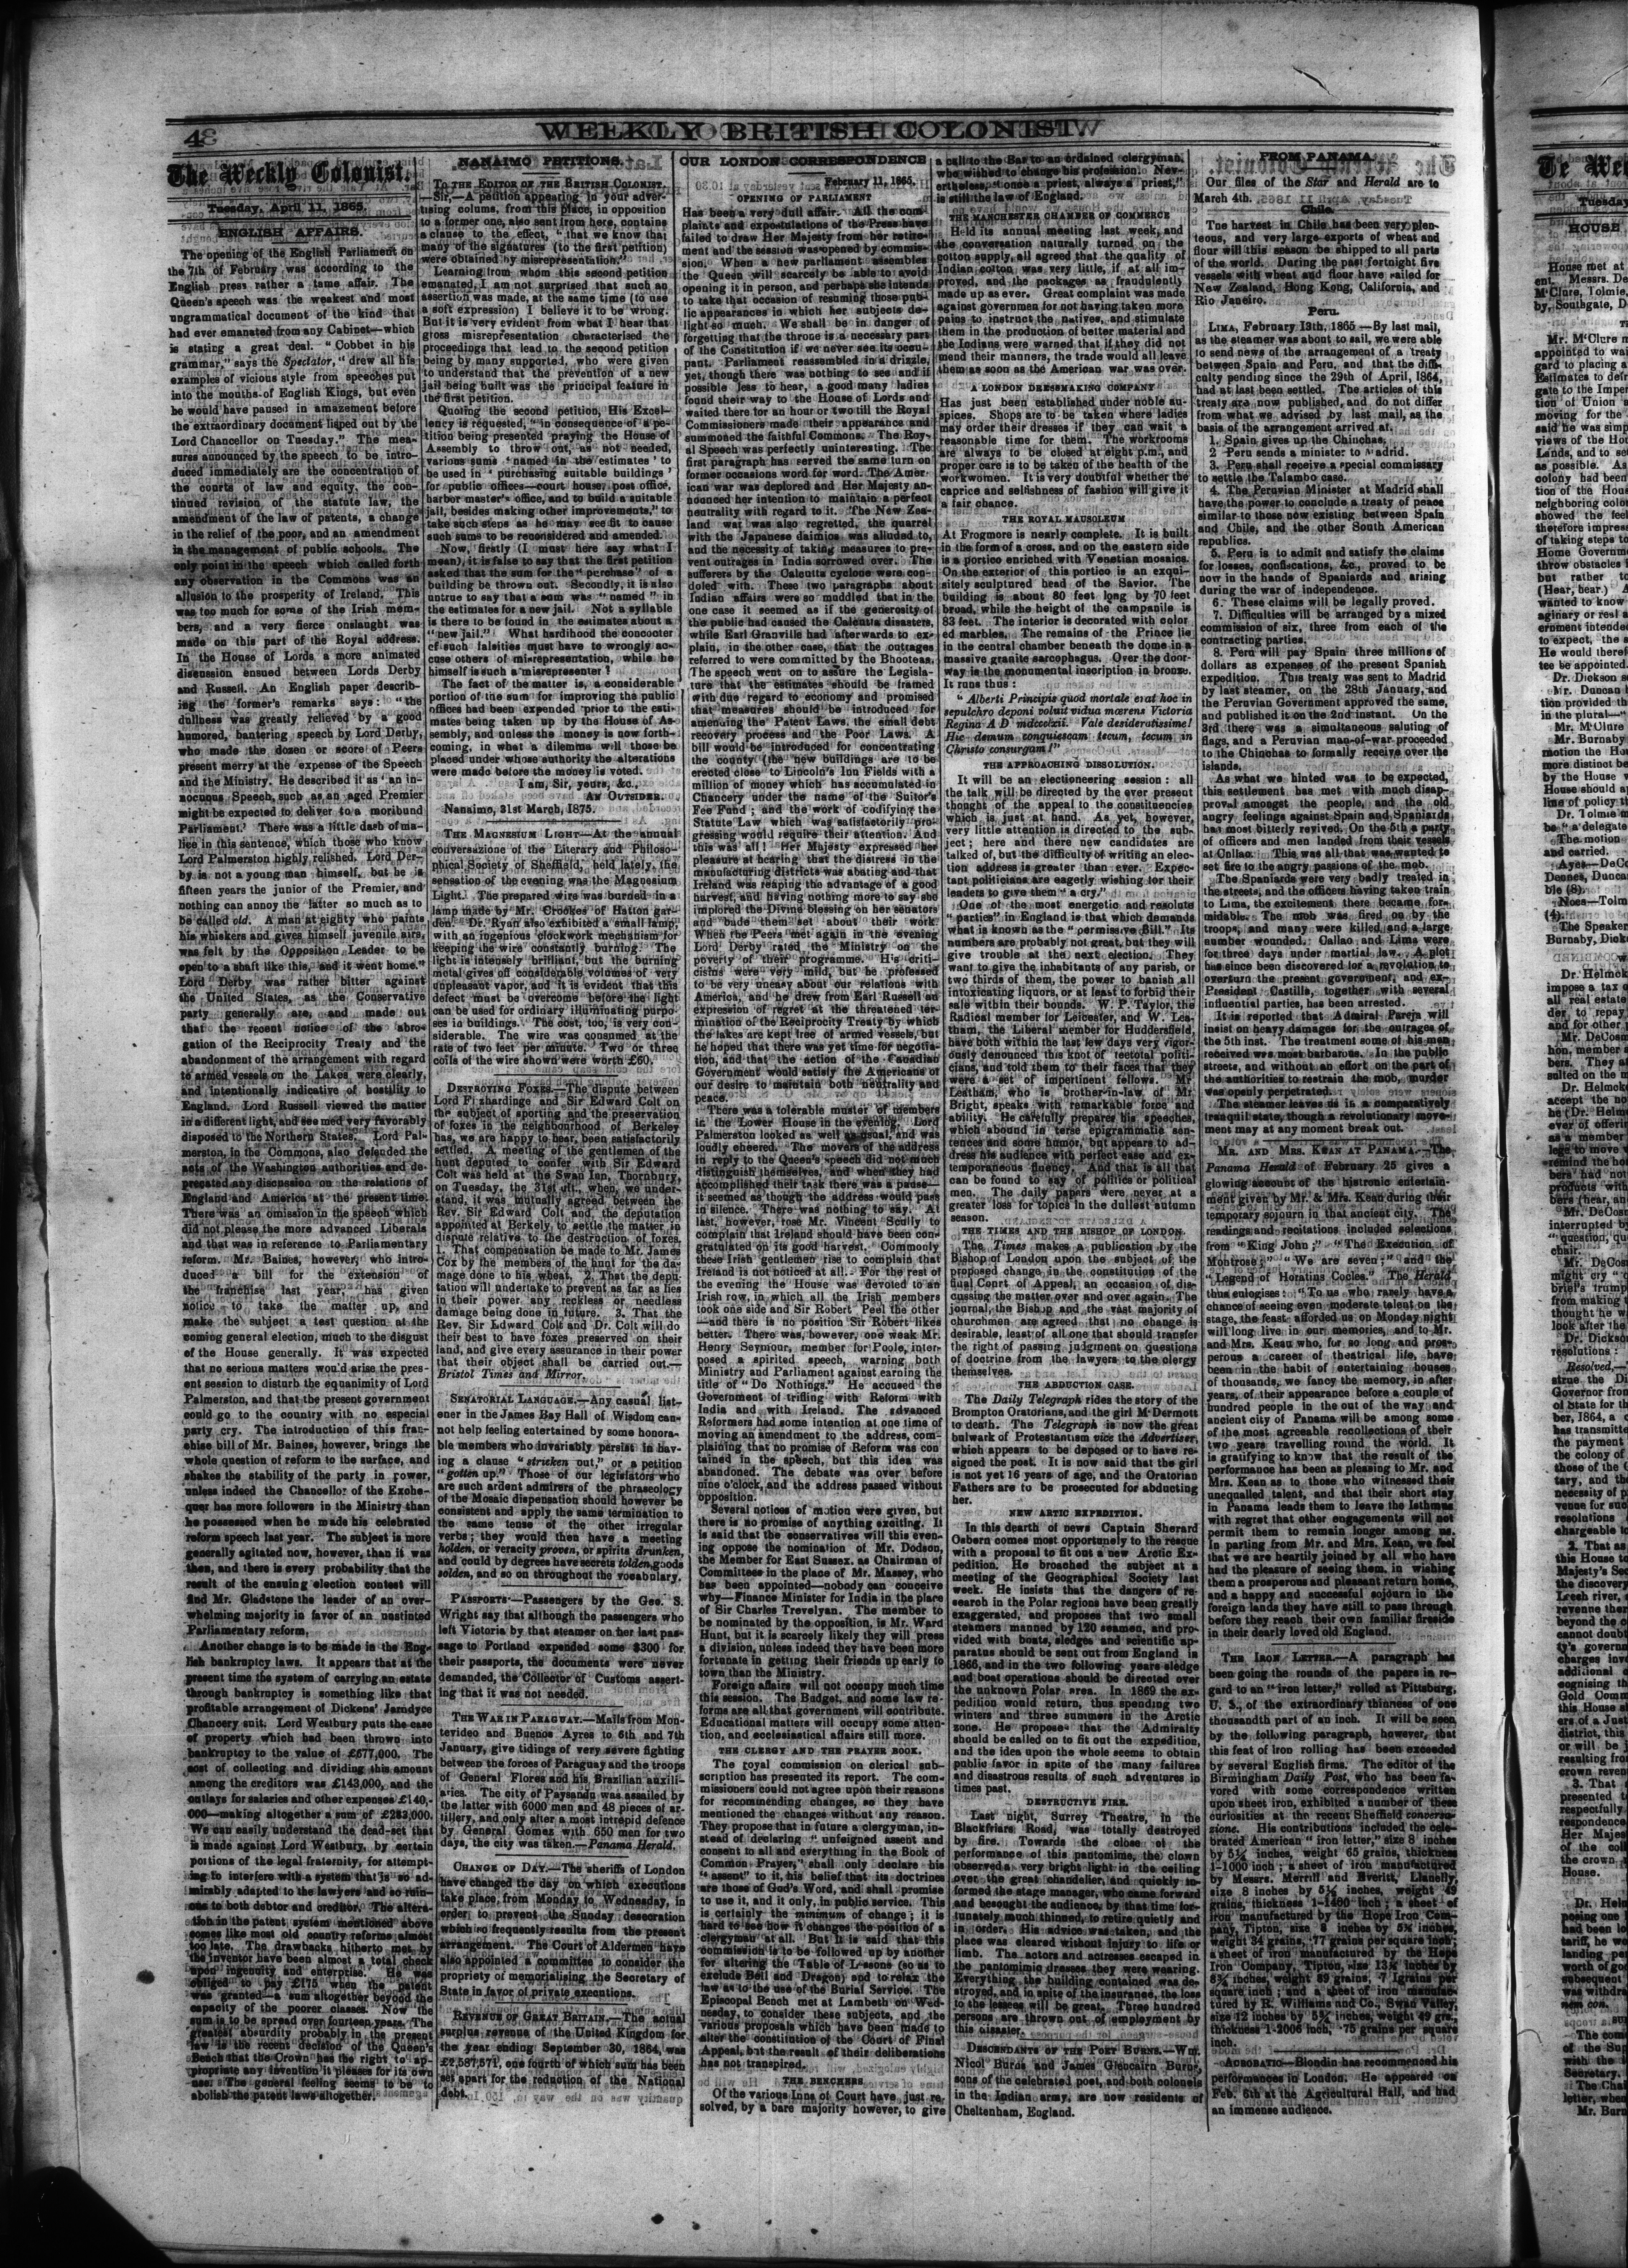 4
WEEKLY BRITISH COLONIST
The Weekly Colonist.
Tuesday, April 11, 1865.
ENGLISH AFFAIRS.
The opening of the English Parliament on
the 7th of February was according to the
English press rather a tame affair. The
Queen's speech was the weakest and most
ungrammatical document of the kind that
had ever emanated from any Cabinet—which
is stating a great deal. "Cobbet in his
grammar," says the Spectator, "drew all his
examples of vicious style from speeches put
into the mouths of English Kings, but even
he would have paused in amazement before
the extraordinary document lisped out by the
Lord Chancellor on Tuesday." The mea-
sures announced by the speech to be intro-
duced immediately are the concentration of
the courts of law and equity, the con-
tinued revision of the statute law, the
amendment of the law of patents, a change
in the relief of the poor, and an amendment
in the management of public schools. The
only point in the speech which called forth
any observation in the Commons was an
allusion to the prosperity of Ireland. This
was too much for some of the Irish mem-
bers, and a very fierce onslaught was
made on this part of the Royal address.
In the House of Lords a more animated
discussion ensued between Lords Derby
and Russell. An English paper describ-
ing the former's remarks says: "the
dullness was greatly relieved by a good
humored, bantering speech by Lord Derby,
who made the dozen or score of Peers
present merry at the expense of the Speech
and the Ministry. He described it as 'an in-
nocuous Speech, such as an aged Premier
might be expected to deliver to a moribund
Parliament.' There was a little dash of ma-
lice in this sentence, which those who know
Lord Palmerston highly relished. Lord Der-
by is not a young man himself, but he is
fifteen years the junior of the Premier, and
nothing can annoy the latter so much as to
be called old. A man at eighty who paints
his whiskers and gives himself juvenile airs,
was felt by the Opposition Leader to be
open to a shaft like this, and it went home."
Lord Derby was rather bitter against
the United States, as the Conservative
party generally are, and made out
that the recent notice of the abro-
gation of the Reciprocity Treaty and the
abandonment of the arrangement with regard
to armed vessels on the Lakes were clearly,
and intentionally indicative of hostility to
England. Lord Russell viewed the matter
in a different light, and seemed very favorably
disposed to the Northern States. Lord Pal-
merston, in the Commons, also defended the
acts of the Washington authorities and de-
precated any discussion on the relations of
England and America at the present time.
There was an omission in the speech which
did not please the more advanced Liberals
and that was in reference to Parliamentary
reform. Mr. Baines, however, who intro-
duced a bill for the extension of
the franchise last year, has given
notice to take the matter up, and
make the subject a test question at the
coming general election, much to the disgust
of the House generally. It was expected
that no serious matters would arise the pres-
ent session to disturb the equanimity of Lord
Palmerston, and that the present government
could go to the country with no especial
party cry. The introduction of this fran-
chise bill of Mr. Baines, however, brings the
whole question of reform to the surface, and
shakes the stability of the party in power,
unless indeed the Chancellor of the Exche-
quer has more followers in the Ministry than
he possessed when he made his celebrated
reform speech last year. The subject is more
generally agitated now, however, than it was
then, and there is every probability that the
result of the ensuing election contest will
find Mr. Gladstone the leader of an over-
whelming majority in favor of an unstinted
Parliamentary reform.
Another change is to be made in the Eng-
lish bankruptcy laws. It appears that at the
present time the system of carrying an estate
through bankruptcy is something like that
profitable arrangement of Dickens' Jarndyce
Chancery suit. Lord Westbury puts the case
of property which had been thrown into
bankruptcy to the value of £677,000. The
cost of collecting and dividing this amount
among the creditors was £143,000, and the
outlays for salaries and other expenses £140,-
000—making altogether a sum of £283,000.
We can easily understand the dead-set that
is made against Lord Westbury, by certain
portions of the legal fraternity, for attempt-
ing to interfere with a system that is so ad-
mirably adapted to the lawyers and so ruin-
ous to both debtor and creditor. The altera-
tion in the patent system mentioned above
comes like most old country reforms almost
too late. The drawbacks hitherto met by
the inventor have been almost a total check
upon ingenuity and enterprise. He was
obliged to pay £175 when the patent
was granted—a sum altogether beyond the
capacity of the poorer classes. Now the
sum is to be spread over fourteen years. The
greatest absurdity probably in the present
law is the recent decision of the Queen's
Bench that the Crown has the right to ap-
propriate any invention it pleases for its own
use. The general feeling seems to be to
abolish the patent laws altogether.
NANAIMO PETITIONS.
To the Editor of the British Colonist,
—Sir,—A petition appearing in your adver-
tising colums, from this place, in opposition
to a former one, also sent from here, contains
a clause to the effect, "that we know that
many of the signatures (to the first petition)
were obtained by misrepresentation."
Learning from whom this second petition
emanated, I am not surprised that such an
assertion was made, at the same time (to use
a soft expression) I believe it to be wrong.
But it is very evident from what I hear that
gross misrepresentation characterised the
proceedings that lead to the second petition
being by many supported, who were given
to understand that the prevention of a new
jail being built was the principal feature in
the first petition.
Quoting the second petition, His Excel-
lency is requested, "in consequence of a pe-
tition being presented praying the House of
Assembly to throw out, as not needed,
various sums 'named in the estimates' to
be used in 'purchasing suitable buildings'
for public offices—court house, post office,
harbor master's office, and to build a suitable
jail, besides making other improvements," to
take such steps as he may see fit to cause
such sums to be reconsidered and amended.
Now, firstly (I must here say what I
mean), it is false to say that the first petition
asked that the sum for the "purchase" of a
building be thrown out. Secondly, it is also
untrue to say that a sum was "named" in
the estimates for a new jail. Not a syllable
is there to be found in the estimates about a
"new jail." What hardihood the concocter
of such falsities must have to wrongly ac-
cuse others of misrepresentation, while he
himself is such a misrepresenter!
The fact of the matter is, a considerable
portion of the sum for improving the public
offices had been expended prior to the esti-
mates being taken up by the House of As-
sembly, and unless the money is now forth-
coming, in what a dilemma will those be
placed under whose authority the alterations
were made before the money is voted.
I am, Sir, yours, &c.,
An Outsider.
Nanaimo, 31st March, 1875.
The Magnesium Light—At the annual
conversazione of the Literary and Philoso-
phical Society of Sheffield, held lately, the
sensation of the evening was the Magnesium
Light. The prepared wire was burned in a
lamp made by Mr. Crookes of Hatton gar-
den. Dr. Ryan also exhibited a small lamp,
with an ingenious clockwork mechanism for
keeping the wire constantly burning. The
light is intensely brilliant, but the burning
metal gives off considerable volumes of very
unpleasant vapor, and it is evident that this
defect must be overcome before the light
can be used for ordinary illuminating purpo-
ses in buildings. The cost, too, is very con-
siderable. The wire was consumed at the
rate of two feet per minute. Two or three
coils of the wire shown were worth £60.
Destroying Foxes.—The dispute between
Lord Fizhardinge and Sir Edward Colt on
the subject of sporting and the preservation
of foxes in the neighbourhood of Berkeley
has, we are happy to hear, been satisfactorily
settled. A meeting of the gentlemen of the
hunt deputed to confer with Sir Edward
Colt was held at the Swan Inn, Thornbury,
on Tuesday, the 31st ult., when, we under-
stand, it was mutually agreed between the
Rev. Sir Edward Colt, and the deputation
appointed at Berkely, to settle the matter in
dispute relative to the destruction of foxes,
1. That compensation be made to Mr. James
Cox by the members of the hunt for the da-
mage done to his wheat. 2. That the depu-
tation will undertake to prevent as far as lies
in their power any reckless or needless
damage being done in future. 3. That the
Rev. Sir Edward Colt and Dr. Colt will do
their best to have foxes preserved on their
land, and give every assurance in their power
that their object shall be carried out.—
Bristol Times and Mirror.
Senatorial Language.—Any casual list-
ener in the James Bay Hall of Wisdom can-
not help feeling entertained by some honora-
ble members who invariably persist in hav-
ing a clause "stricken out," or a petition
"gotten up." Those of our legislators who
are such ardent admirers of the phraseology
of the Mosaic dispensation should however be
consistent and apply the same termination to
the same tense of the other irregular
verbs; they would then have a meeting
holden, or veracity proven, or spirits drunken,
and could by degrees have secrets tolden, goods
solden, and so on throughout the vocabulary.
Passports—Passengers by the Geo. S.
Wright say that although the passengers who
left Victoria by that steamer on her last pas-
sage to Portland expended some $300 for
their passports, the documents were never
demanded, the Collector of Customs assert-
ing that it was not needed.
The War in Paraguay.—Mails from Mon-
tevideo and Buenos Ayres to 6th and 7th
January, give tidings of very severe fighting
between the forces of Paraguay and the troops
of General Flores and his Brazilian auxili-
aries. The city of Paysandu was assailed by
the latter with 6000 men and 48 pieces of ar-
tillery, and only after a most intrepid defence
by General Gomez with 650 men for two
days, the city was taken.—Panama Herald.
Change of Day.—The sheriffs of London
have changed the day on which executions
take place, from Monday to Wednesday, in
order to prevent the Sunday desecration
which so frequently results from the present
arrangement. The Court of Aldermen have
also appointed a committee to consider the
propriety of memorialising the Secretary of
State in favor of private executions.
Revenue of Great Britain.—The actual
surplus revenue of the United Kingdom for
the year ending September 30, 1864, was
£2,587,571, one fourth of which sum has been
set apart for the reduction of the National
debt.
OUR LONDON CORRESPONDENCE
February 11, 1865.
OPENING OF PARLIAMENT
Has been a very dull affair. All the com-
plaints and expostulations of the Press have
failed to draw Her Majesty from her retire-
ment and the session was opened by commis-
sion. When a new parliament assembles
the Queen will scarcely be able to avoid
opening it in person, and perhaps she intends
to take that occasion of resuming those pub-
lic appearances in which her subjects de-
light so much. We shall be in danger of
forgetting that the throne is a necessary part
of the Constitution if we never see its occu-
pant. Parliament reassembled in a drizzle,
yet, though there was nothing to see and if
possible less to hear, a good many ladies
found their way to the House of Lords and
waited there for an hour or two till the Royal
Commissioners made their appearance and
summoned the faithful Commons. The Roy-
al Speech was perfectly uninteresting. The
first paragraph has served the same turn on
former occasions word for word. The Amer-
ican war was deplored and Her Majesty an-
nounced her intention to maintain a perfect
neutrality with regard to it. The New Zea-
land war was also regretted, the quarrel
with the Japanese daimios was alluded to,
and the necessity of taking measures to pre-
vent outrages in India sorrowed over. The
sufferers by the Calcutta cyclone were con-
doled with. These two paragraphs about
Indian affairs were so muddled that in the
one case it seemed as if the generosity of
the public had caused the Calcutta disasters,
while Earl Granville had afterwards to ex-
plain, in the other case, that the outrages
referred to were committed by the Bhooteas.
The speech went on to assure the Legisla-
ture that the estimates should be framed
with due regard to economy and promised
that measures should be introduced for
amending the Patent Laws, the small debt
recovery process and the Poor Laws. A
bill would be introduced for concentrating
the county (the new buildings are to be
erected close to Lincoln's Inn Fields with a
million of money which has accumulated in
Chancery under the name of the Suitor's
Fee Fund; and the work of codifying the
Statute Law which was satisfactorily pro-
gressing would require their attention. And
this was all! Her Majesty expressed her
pleasure at hearing that the distress in the
manufacturing districts was abating and that
Ireland was reaping the advantage of a good
harvest, and having nothing more to say she
implored the Divine blessing on her senators
and bade them set about their work.
When the Peers met again in the evening
Lord Derby rated the Ministry on the
poverty of their programme. His criti-
cisms were very mild, but he professed
to be very uneasy about our relations with
America, and he drew from Earl Russell an
expression of regret at the threatened ter-
mination of the Reciprocity Treaty by which
the lakes are kept free of armed vessels, but
he hoped that there was yet time for negotia-
tion, and that the action of the Canadian
Government would satisfy the Americans of
our desire to maintain both neutrality and
peace.
There was a tolerable muster of members
in the Lower House in the evening. Lord
Palmerston looked as well as usual, and was
loudly cheered. The movers of the address
in reply to the Queen's speech did not much
distinguish themselves, and when they had
accomplished their task there was a pause—
it seemed as though the address would pass
in silence. There was nothing to say. At
last, however, rose Mr. Vincent Scully to
complain that Ireland should have been con-
gratulated on its good harvest. Commonly
these Irish gentlemen rise to complain that
Ireland is not noticed at all. For the rest of
the evening the House was devoted to an
Irish row, in which all the Irish members
took one side and Sir Robert Peel the other
—and there is no position Sir Robert likes
better. There was, however, one weak Mr.
Henry Seymour, member for Poole, inter-
posed a spirited speech, warning both
Ministry and Parliament against earning the
title of "Do Nothings." He accused the
Government of trifling with Reform with
India and with Ireland. The advanced
Reformers had some intention at one time of
moving an amendment to the address, com-
plaining that no promise of Reform was con
tained in the speech, but this idea was
abandoned. The debate was over before
nine o'clock, and the address passed without
opposition.
Several notices of motion were given, but
there is no promise of anything exciting. It
is said that the conservatives will this even-
ing oppose the nomination of Mr. Dodson,
the Member for East Sussex, as Chairman of
Committees in the place of Mr. Massey, who
has been appointed—nobody can conceive
why—Finance Minister for India in the place
of Sir Charles Trevelyan. The member to
be nominated by the opposition, is Mr. Ward
Hunt, but it is scarcely likely they will press
a division, unless indeed they have been more
fortunate in getting their friends up early to
town than the Ministry.
Foreign affairs will not occupy much time
this session. The Budget, and some law re-
forms are all that government will contribute.
Educational matters will occupy some atten-
tion, and ecclesiastical affairs still more.
THE CLERGY AND THE PRAYER BOOK.
The royal commission on clerical sub-
scription has presented its report. The com-
missioners could not agree upon their reasons
for recommending changes, so they have
mentioned the changes without any reason.
They propose that in future a clergyman, in-
stead of declaring "unfeigned assent and
consent to all and everything in the Book of
Common Prayer," shall only declare his
"assent" to it, his belief that its doctrines
are those of God's Word, and shall promise
to use it, and it only, in public service. This
is certainly the minimum of change; it is
hard to see how it changes the position of a
clergyman at all. But it is said that this
commission is to be followed up by another
for altering the Table of Lessons (so as to
exclude Bell and Dragon) and to relax the
law as to the use of the Burial Service. The
Episcopal Bench met at Lambeth on Wed-
nesday, to consider these subjects, and the
various proposals which have been made to
alter the constitution of the Court of Final
Appeal, but the result of their deliberations
has not transpired.
THE BENCHERS
Of the various Inns of Court have just re-
solved, by a bare majority however, to give
a call to the Bar to an ordained clergyman,
who wished to change his profession. Nev-
ertheless, "once a priest, always a priest,"
is still the law of England.
THE MANCHESTER CHAMBER OF COMMERCE
Held its annual meeting last week, and
the conversation naturally turned on the
cotton supply, all agreed that the quality of
Indian cotton was very little, if at all im-
proved, and the packages as fraudulently
made up as ever. Great complaint was made
against governmen for not having taken more
pains to instruct the natives, and stimulate
them in the production of better material and
the Indians were warned that if they did not
mend their manners, the trade would all leave
them as soon as the American war was over.
A LONDON DRESSMAKING COMPANY
Has just been established under noble au-
spices. Shops are to be taken where ladies
may order their dresses if they can wait a
reasonable time for them. The workrooms
are always to be closed at eight p.m., and
proper care is to be taken of the health of the
workwomen. It is very doubtful whether the
caprice and selfishness of fashion will give it
a fair chance.
THE ROYAL MAUSOLEUM
At Frogmore is nearly complete. It is built
in the form of a cross, and on the eastern side
is a portico enriched with Venetian mosaics.
On the exterior of this portico is an exqui-
sitely sculptured head of the Savior. The
building is about 80 feet long by 70 feet
broad, while the height of the campanile is
83 feet. The interior is decorated with color
ed marbles. The remains of the Prince lie
in the central chamber beneath the dome in a
massive granite sarcophagus. Over the door-
way is the monumental inscription in bronze.
It runs thus:
"Alberti Principis quod mortale erat hoc in
sepulchro deponi voluit vidua mœrens Victoria
Regina A D mdccclxii. Vale desideratissime!
Hic demum conquiescam tecum, tecum in
Christo consurgam!"
THE APPROACHING DISSOLUTION.
It will be an electioneering session: all
the talk will be directed by the ever present
thought of the appeal to the constituencies
which is just at hand. As yet, however,
very little attention is directed to the sub-
ject; here and there new candidates are
talked of, but the difficulty of writing an elec-
tion address is greater than ever. Expec-
tant politicians are eagerly wishing for their
leaders to give them "a cry."
One of the most energetic and resolute
"parties" in England is that which demands
what is known as the "permissive Bill." Its
numbers are probably not great, but they will
give trouble at the next election. They
want to give the inhabitants of any parish, or
two thirds of them, the power to banish all
intoxicating liquors, or at least to forbid their
sale within their bounds. W. P. Taylor, the
Radical member for Leicester, and W. Lea-
tham, the Liberal member for Huddersfield,
have both within the last few days very vigor-
ously denounced this knot of teetotal politi-
cians, and told them to their faces that they
were a set of impertinent fellows. Mr
Leatham, who is brother-in-law of Mr
Bright, speaks with remarkable force and
ability. He carefully prepares his speeches,
which abound in terse epigrammatic sen-
tences and some humor, but appears to ad-
dress his audience with perfect ease and ex-
temporaneous fluency. And that is all that
can be found to say of politics or political
men. The daily papers were never at a
greater loss for topics in the dullest autumn
season.
THE TIMES AND THE BISHOP OF LONDON.
The Times makes a publication by the
Bishop of London upon the subject of the
proposed change in the constitution of the
final Court of Appeal, an occasion of dis
cussing the matter over and over again. The
journal, the Bishop and the vast majority of
churchmen are agreed that no change is
desirable, least of all one that should transfer
the right of passing judgment on questions
of doctrine from the lawyers to the clergy
themselves.
THE ABDUCTION CASE.
The Daily Telegraph rides the story of the
Brompton Oratorians, and the girl M'Dermott
to death. The Telegraph is now the great
bulwark of Protestantism vice the Advertiser,
which appears to be deposed or to have re-
signed the post. It is now said that the girl
is not yet 16 years of age, and the Oratorian
Fathers are to be prosecuted for abducting
her.
NEW ARTIC EXPEDITION.
In this dearth of news Captain Sherard
Osborn comes most opportunely to the rescue
with a proposal to fit out a new Arctic Ex-
pedition. He broached the subject at a
meeting of the Geographical Society last
week. He insists that the dangers of re-
search in the Polar regions have been greatly
exaggerated, and proposes that two small
steamers manned by 120 seamen, and pro-
vided with boats, sledges and scientific ap-
paratus should be sent out from England in
1866, and in the two following years sledge
and boat operations should be directed over
the unknown Polar area. In 1869 the ex-
pedition would return, thus spending two
winters and three summers in the Arctic
zone. He proposes that the Admiralty
should be called on to fit out the expedition,
and the idea upon the whole seems to obtain
public favor in spite of the many failures
and disastrous results of such adventures in
times past.
DESTRUCTIVE FIRE.
Last night, Surrey Theatre, in the
Blackfriars Road, was totally destroyed
by fire. Towards the close of the
performance of this pantomime, the clown
observed a very bright light in the ceiling
over the great chandelier, and quickly in-
formed the stage manager, who came forward
and besought the audience, by that time for-
tunately much thinned, to retire quietly and
in order. His advice was taken, and the
place was cleared without injury to life or
limb. The actors and actresses escaped in
the pantomimic dresses they were wearing.
Everything the building contained was de-
stroyed, and in spite of the insurance, the loss
to the lessees will be great. Three hundred
persons are thrown out of employment by
this disaster.
Descendants of the Poet Burns.—Wm.
Nicol Burns and James Glencairn Burns,
sons of the celebrated poet, and both colonels
in the Indian army, are now residents of
Cheltenham, England.
FROM PANAMA.
Our files of the Star and Herald are to
March 4th.
Chile.
The harvest in Chile has been very plen-
teous, and very large exports of wheat and
flour will this season be shipped to all parts
of the world. During the past fortnight five
vessels with wheat and flour have sailed for
New Zealand, Hong Kong, California, and
Rio Janeiro.
Peru.
Lima, February 13th, 1865—By last mail,
as the steamer was about to sail, we were able
to send news of the arrangement of a treaty
between Spain and Peru, and that the diffi-
culty pending since the 29th of April, 1864,
had at last been settled. The articles of this
treaty are now published, and do not differ
from what we advised by last mail, as the
basis of the arrangement arrived at.
1. Spain gives up the Chinchas.
2 Peru sends a minister to Madrid.
3. Peru shall receive a special commissary
to settle the Talambo case.
4. The Peruvian Minister at Madrid shall
have the power to conclude a treaty of peace
similar to those now existing between Spain
and Chile, and the other South American
republics.
5. Peru is to admit and satisfy the claims
for losses, confiscations, &c., proved to be
now in the hands of Spaniards and arising
during the war of independence.
6. These claims will be legally proved.
7. Difficulties will be arranged by a mixed
commission of six, three from each of the
contracting parties.
8. Peru will pay Spain three millions of
dollars as expenses of the present Spanish
expedition. This treaty was sent to Madrid
by last steamer, on the 28th January, and
the Peruvian Government approved the same,
and published it on the 2nd instant. On the
3rd there was a simultaneous saluting of
flags, and a Peruvian man-of-war proceeded
to the Chinchas to formally receive over the
islands.
As what we hinted was to be expected,
this settlement has met with much disap-
proval amongst the people, and the old
angry feelings against Spain and Spaniards
has most bitterly revived. On the 5th a party
of officers and men landed from their vessels
at Callao. This was all that was wanted to
set fire to the angry passions of the mob.
The Spaniards were very badly treated in
the streets, and the officers having taken train
to Lima, the excitement there became for-
midable. The mob was fired on by the
troops, and many were killed and a large
number wounded. Callao and Lima were
for three days under martial law. A plot
has since been discovered for a revolution to
overturn the present government, and ex-
President Castilla, together with several
influential parties, has been arrested.
It is reported that Admiral Pareja will
insist on heavy damages for the outrages of
the 5th inst. The treatment some of his men
received was most barbarous. In the public
streets, and without an effort on the part of
the authorities to restrain the mob, murder
was openly perpetrated.
The steamer leaves us in a comparatively
tranquil state, though a revolutionary move-
ment may at any moment break out.
Mr. and Mrs. Kean at Panama.—The
Panama Herald of February 25 gives a
glowing account of the histronic entertain-
ment given by Mr. & Mrs. Kean during their
temporary sojourn in that ancient city. The
readings and recitations included selections
from "King John;" "The Execution of
Montrose;" "We are seven;" and the
"Legend of Horatius Cocles." The Herald
thus eulogises: "To us who rarely have a
chance of seeing even moderate talent on the
stage, the feast afforded us on Monday night
will long live in our memories, and to Mr.
and Mrs. Kean who, for so long and pros-
perous a career of theatrical life, have
been in the habit of entertaining houses
of thousands, we fancy the memory, in after
years, of their appearance before a couple of
hundred people in the out of the way and
ancient city of Panama will be among some
of the most agreeable recollections of their
two years travelling round the world. It
is gratifying to know that the result of the
performance has been as pleasing to Mr. and
Mrs. Kean as to those who witnessed their
unequalled talent, and that their short stay
in Panama leads them to leave the Isthmus
with regret that other engagements will not
permit them to remain longer among us.
In parting from Mr. and Mrs. Kean, we feel
that we are heartily joined by all who have
had the pleasure of seeing them, in wishing
them a prosperous and pleasant return home,
and a happy and successful sojourn in the
foreign lands they have still to pass through
before they reach their own familiar fireside
in their dearly loved old England.
The Iron Letter.—A paragraph has
been going the rounds of the papers in re-
gard to an "iron letter," rolled at Pittsburg,
U. S., of the extraordinary thinness of one
thousandth part of an inch. It will be seen
by the following paragraph, however, that
this feat of iron rolling has been exceeded
by several English firms. The editor of the
Birmingham Daily Post, who has been fa-
vored with some correspondence written
upon sheet iron, exhibited a number of these
curiosities at the recent Sheffield conversa-
zione. His contributions included the cele-
brated American "iron letter," size 8 inches
by 5½ inches, weight 65 grains, thickness
1-1000 inch; a sheet of iron manufactured
by Messrs. Merrill and Everitt, Llanelly,
size 8 inches by 5½ inches, weight 49
grains, thickness 1-1400 inch; a sheet of
iron manufactured by the Hope Iron Com-
pany, Tipton, size 8 inches by 5½ inches,
weight 34 grains, ·77 grains per square inch;
a sheet of iron manufactured by the Hope
Iron Company, Tipton, size 13½ inches by
8¾ inches, weight 89 grains, ·7 1grains per
square inch; and a sheet of iron manufac-
tured by R. Williams and Co., Swan Valley,
size 12 inches by 5½ inches, weight 49 grs.,
thickness 1-2006 inch, ·75 grains per square
inch.
Acrobatic—Blondin has recommenced his
performances in London. He appeared on
Feb. 6th at the Agricultural Hall, and had
an immense audience.
Tuesday
HOUSE
House met at